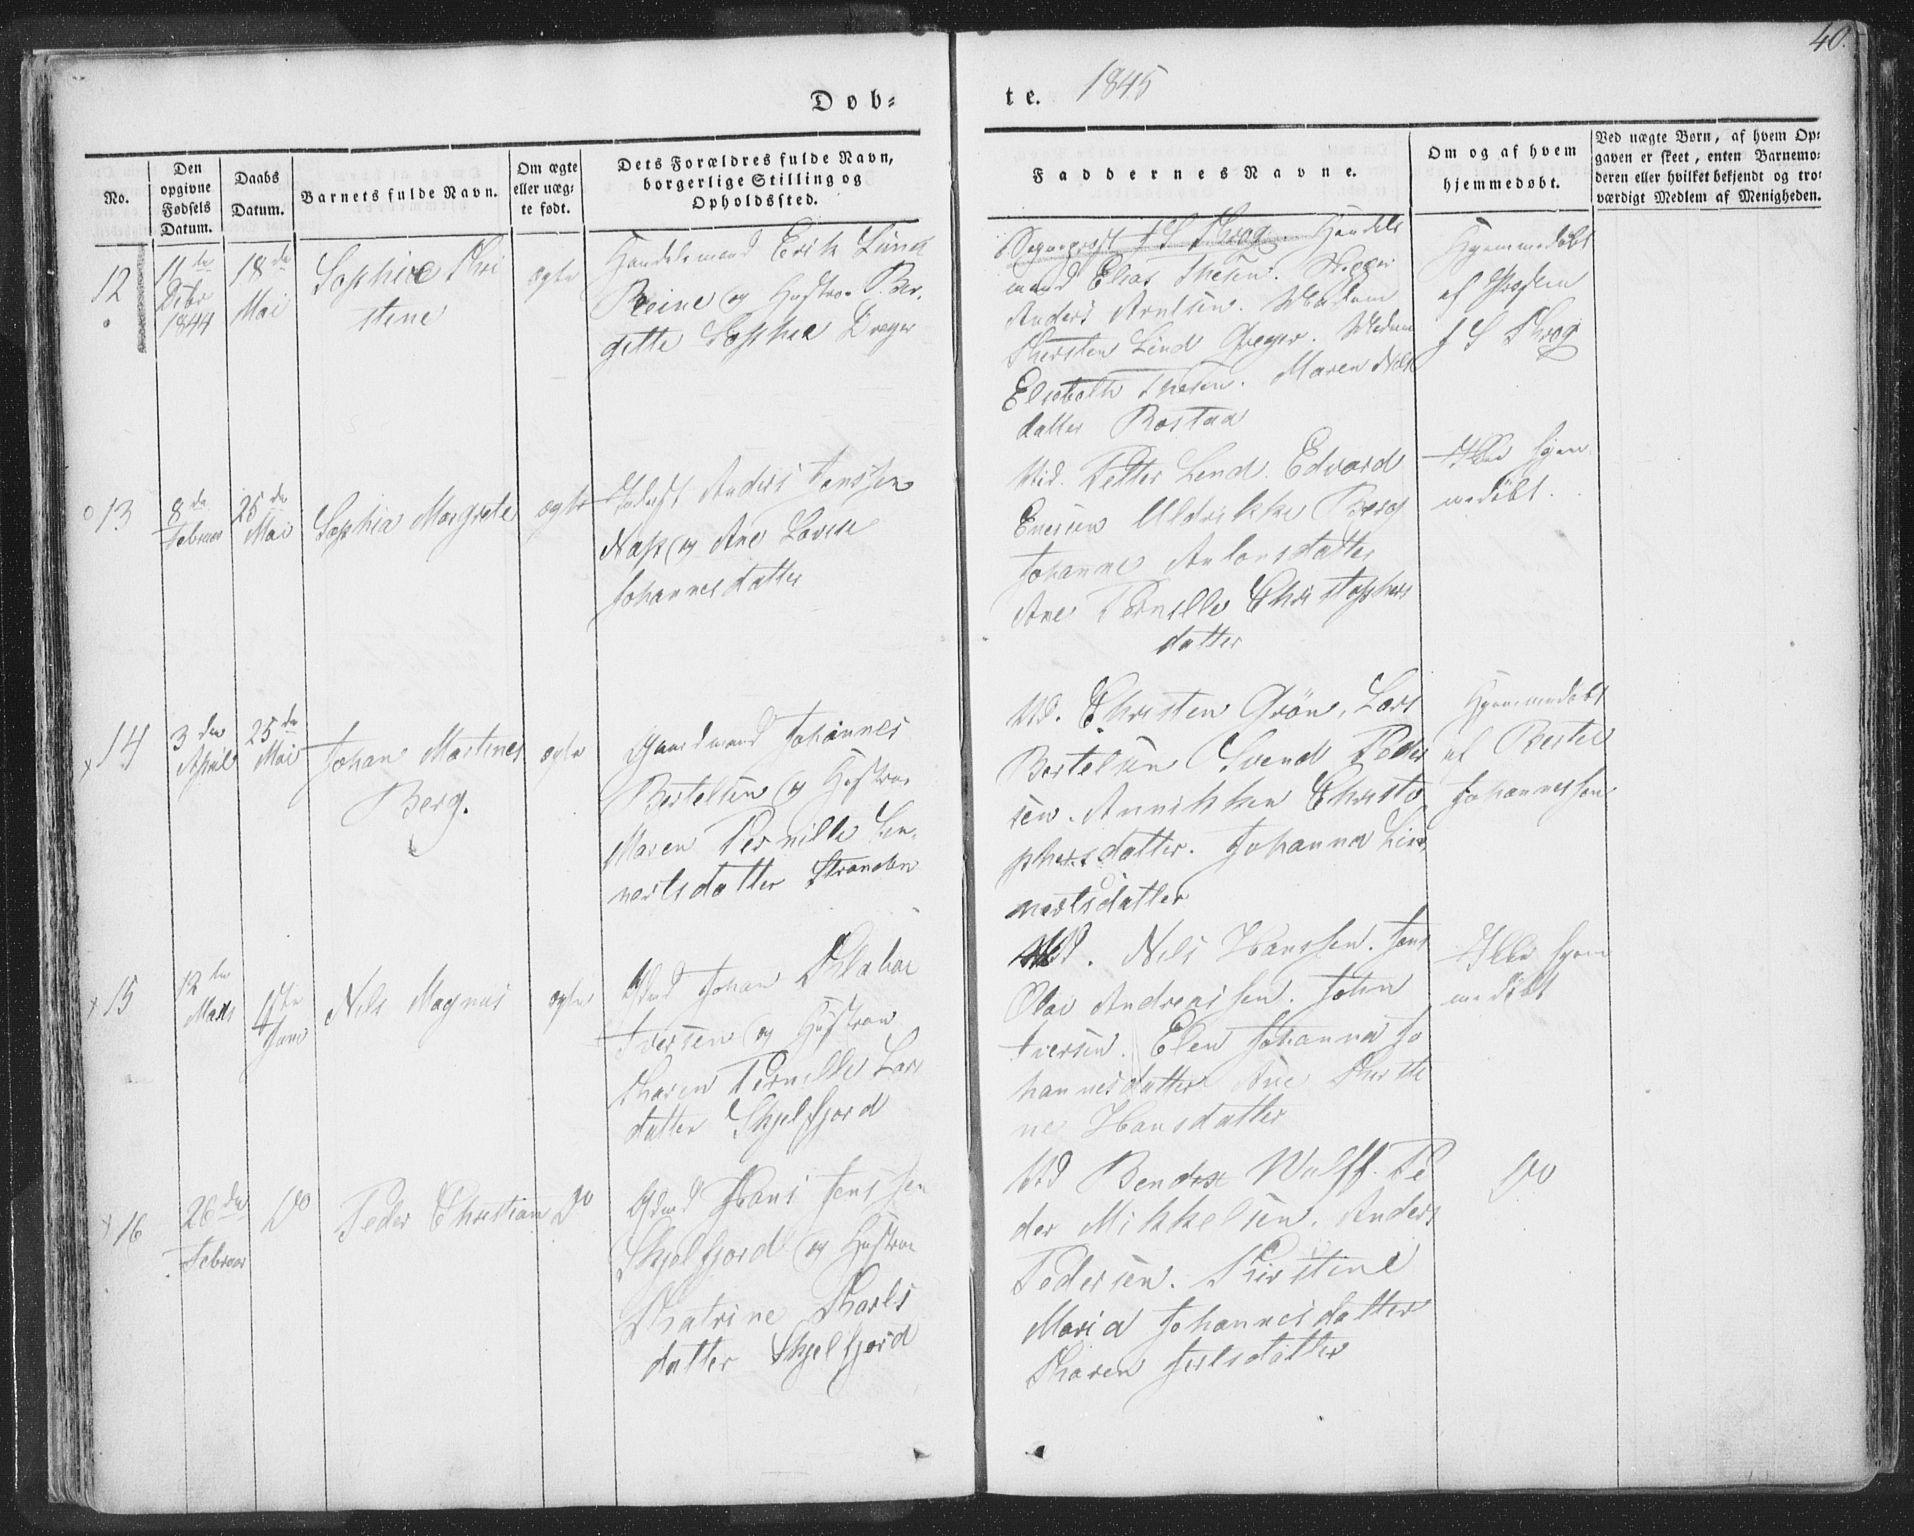 40.
Dob=
te. 1845
No.
Den opgivne Fødsels Datum.
Daabs Datum.
Barnets fulde Navn.
Om ægte eller uæg= te født.
Dets Forældres fulde Navn, borgerlige Stilling og Opholdssted.
Faddernes Navne.
Om og af hvem hjemmedøbt.
Ved uægte Børn, af hvem Op=
gaven er skeet, enten Barnemo=
deren eller hvilket bekjendt og tro=
værdigt Medlem af Menigheden.
12
11te
Dcbr
1844
18de
Mai
Sophie Chri
stine
ægte
Handelsmand Erik Lund
Reine og Hustroe Ber,
gitte Sophia Dreyer
Sogneprest J S Krog. Handels
mand Elias Thesen.
Anders Arntsen. Madam
Kirsten Lind Dreyer. Madam
Elsebeth Thesen. Maren Niels
datter Rostad
Hjemmedøbt
af Præsten
J S Krog
13
8de
Februar
25de
Mai
Sophia Margrete
ægte
Anders Janssen
Næs og Ane Lovise
Johannesdatter
Ud. Petter Lend. Edvard
Enersen Uldrikke Berg
Johanne Antonsdatter
Ane Pernille Christophers
datter
Ikke hjem
medøbt.
14
3die
April
25de
Mai
Johan Martines
Berg.
ægte
Gaardmand Johannes
Bertelsen og Hustroe
Maren Pernille Len,
nertsdatter Stranden
Ud. Christen Grön, Lars
Bertelsen Svend Peder
sen. Annikken Christo
phersdatter. Johanna Len,
nertsdatter
Hjemmedøbt
af Bertel
Johannessen
15
12te
Marts
1ste
Juni
Nils Magnus
ægte
Gmd Johan Klaboe
Iversen og Hustroe
Karen Pernille Lars
datter Skjelfjord
Ud. Nils Hanssen. Jens
Olai Andreassen. John
Iversen. Elen Johanna Jo
hannesdatter Ane Kirsti
ne Hansdatter
Ikke hjem
medøbt
16
26de
Februar
Do
Peder Christian
Do
Gmd Hans Jenssen
Skjelfjord og Hustroe
Katrine Karls
datter Skjelfjord
Ud Bendix Wulff. Pe
der Mikkelsen. Anders
Pedersen. Kirstine
Maria Johannesdatter
Karen Jertsdatter
Do